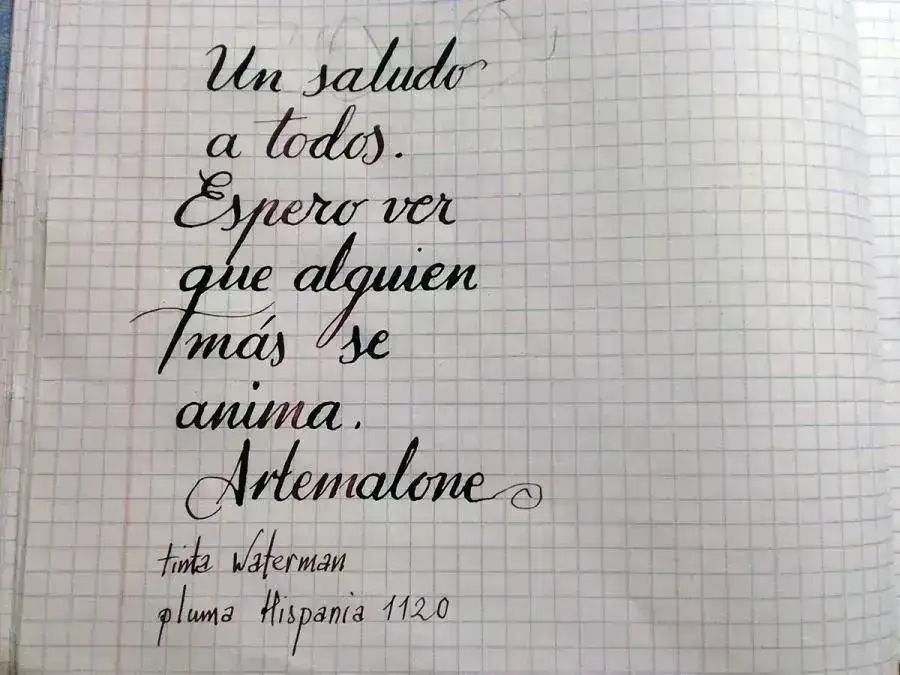 Un saludo
a todos.
Espero ver
que alguien
más se
anima.
Artemalone
tinta Waterman
pluma Hispania 1120